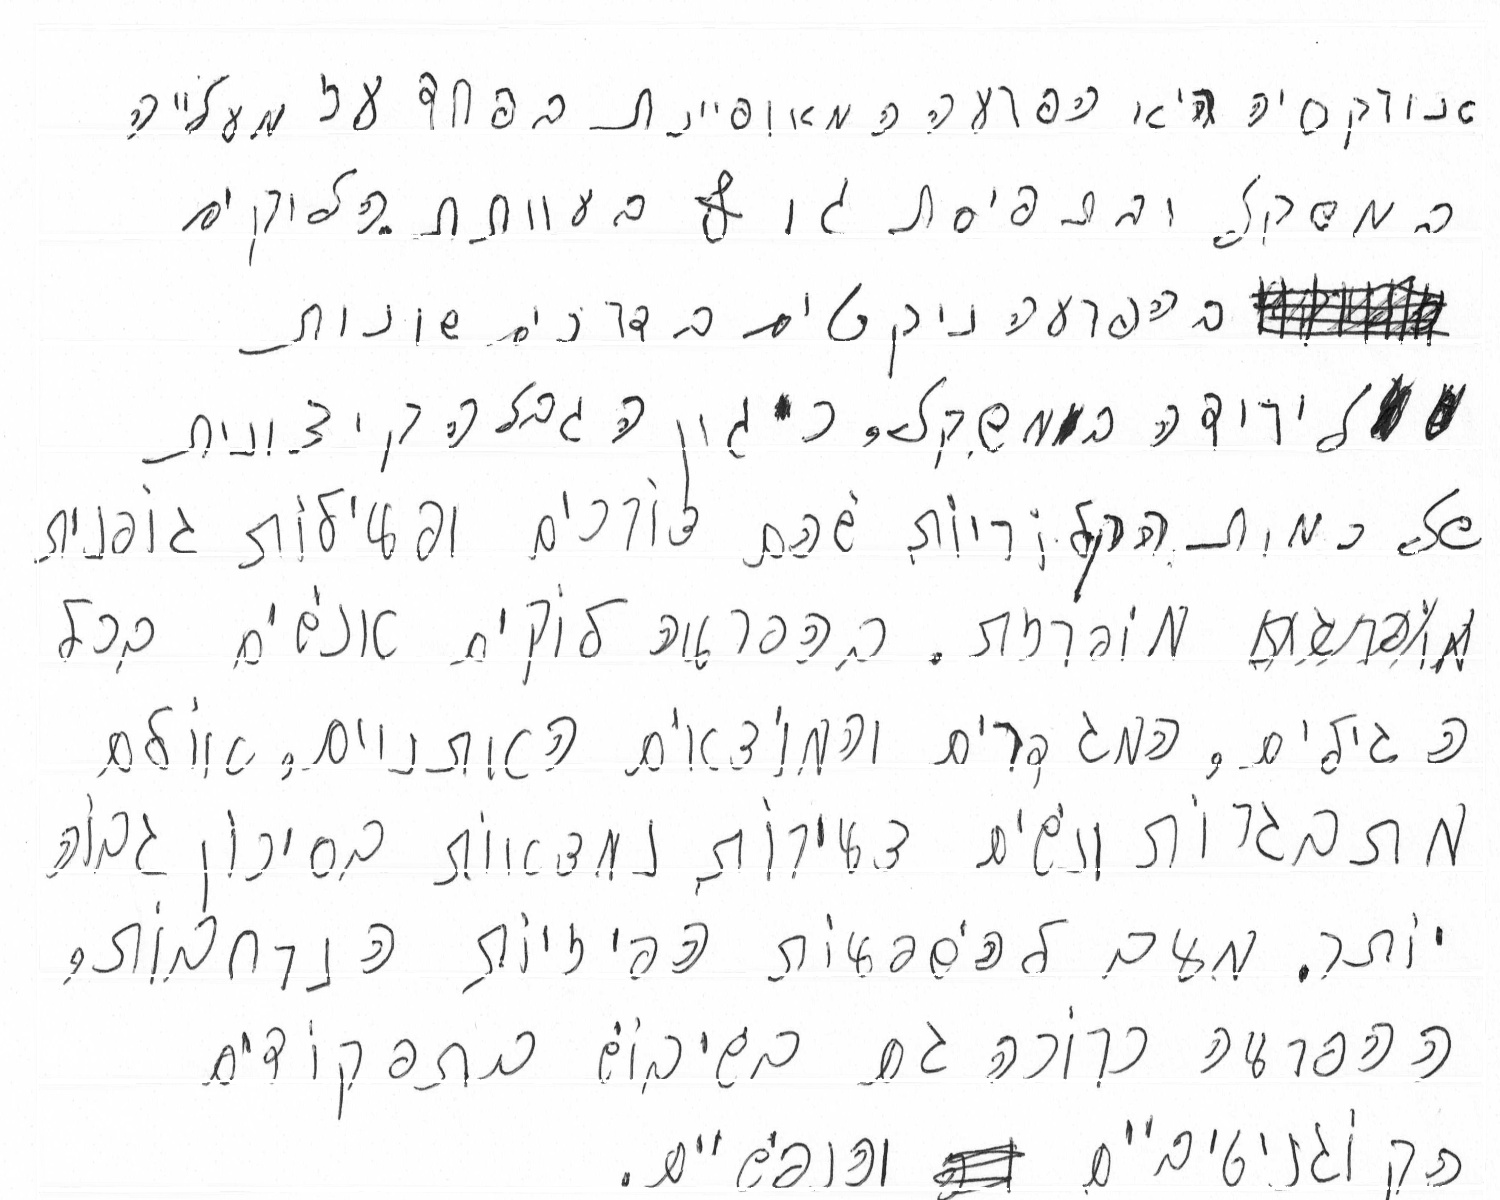 אנורקסיה היא הפרעה המאופיינת בפחד עז מעלייה
במשקל ובתפיסת גוף בעוותת. הלוקים
בהפרעה ניקטים בדרכים שונות
לירידה במשקל, כגון הגבלה קיצונית
של כמות הקלוריות שהם צורכים ופעילות גופנית
מופרזת. בהפרעה לוקים אנשים בכל
הגילים, המגדרים והמוצאים האתנויים, אולם
מתבגרות ונשים צעירות נמצאות בסיכון גבוה
יותר. מעב להשפעות הפיזיות הנרחבות,
ההפרעה כרוכה גם בשיבוש בתפקודים
הקוגניטיביים והנפשיים.